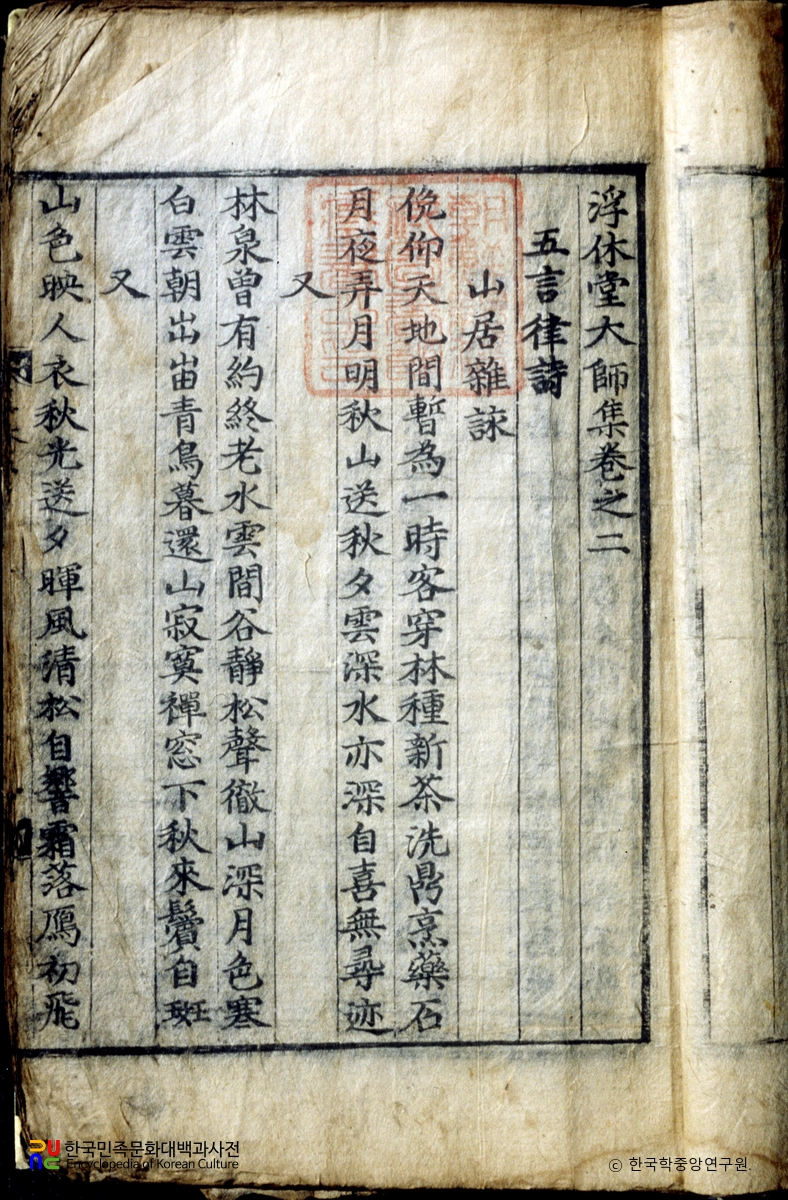 浮休堂大師集卷之二
五言律詩
山居雜詠
俛仰天地間暫為一時客穿林種新茶洗鼎烹藥石
月夜弄月明秋山送秋夕雲深水亦深自喜無尋迹
又
林泉曾有約終老水雲間谷靜松聲徹山深月色寒
白雲朝出峀青鳥暮還山寂寞禪窓下秋來鬢自斑
又
山色映人衣秋光送夕暉風清松自響霜落鴈初飛
한국민족문화대백과사전
Encyclopedia of Korean Culture
© 한국학중앙연구원